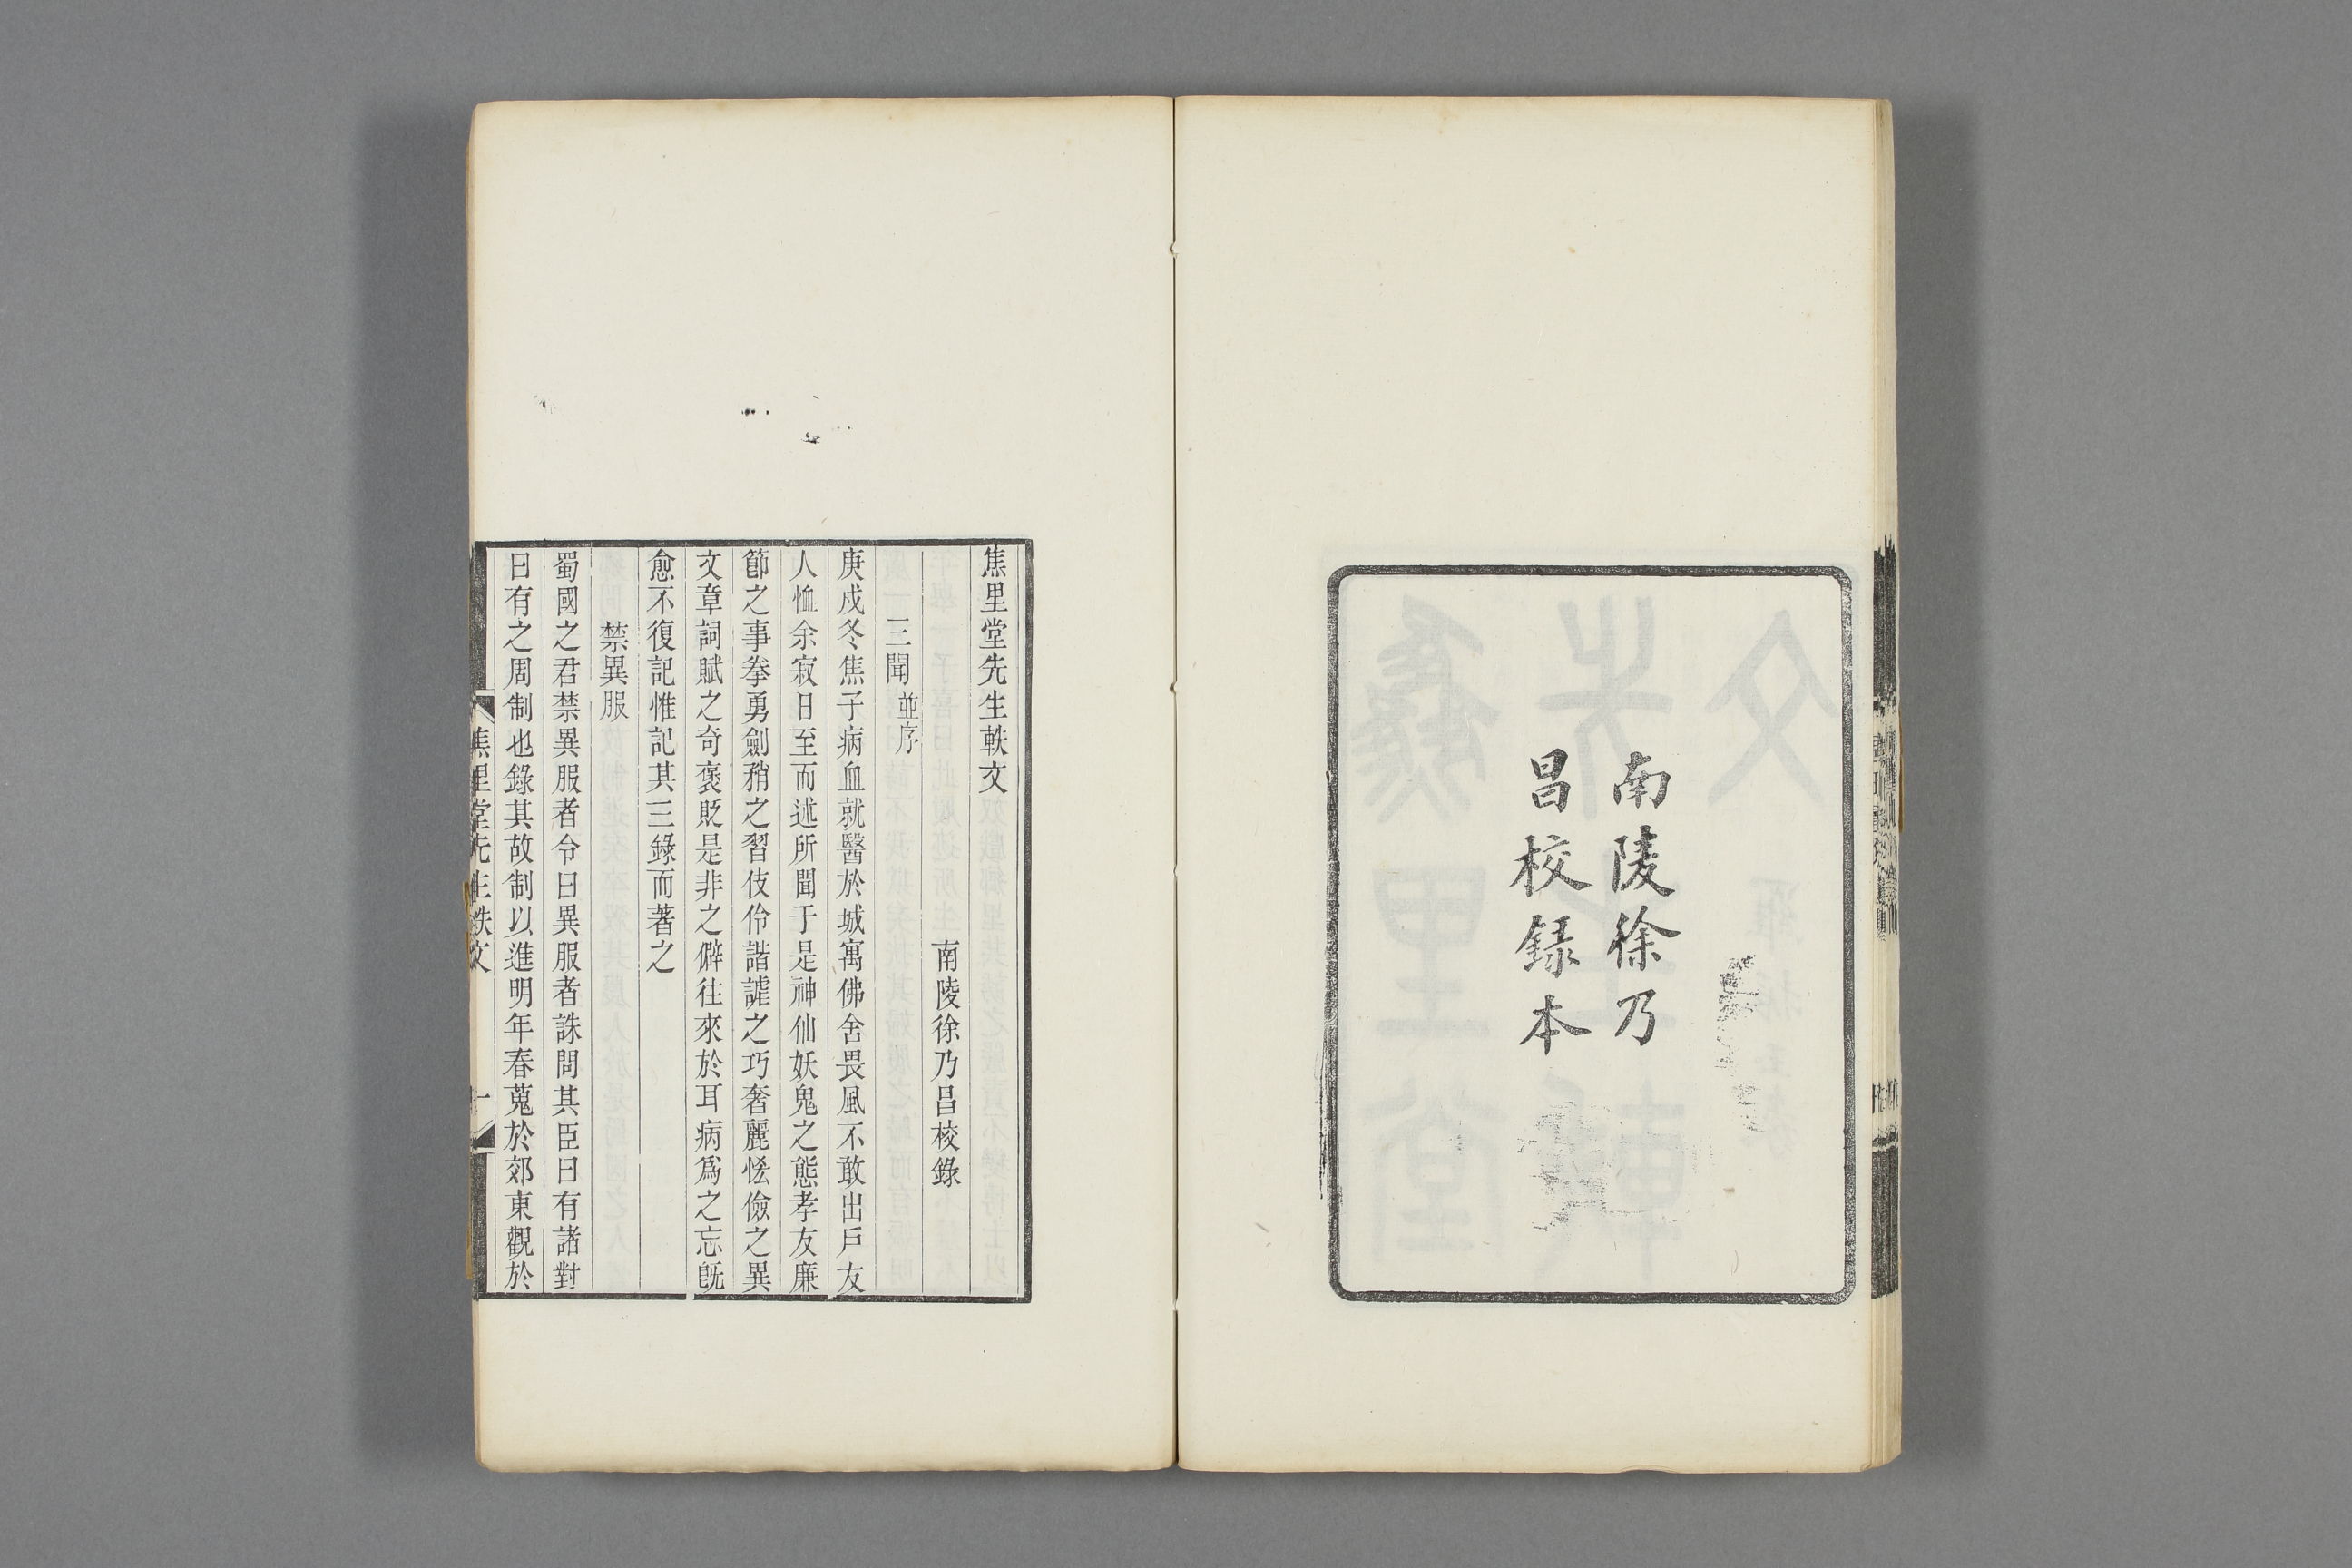 南陵徐乃
昌校録本
焦里堂先生軼文
南陵徐乃昌校錄
三聞並序
庚戌冬焦子病血就醫於城寓佛舍畏風不敢出戶友
人恤余寂日至而述所聞于是神仙妖鬼之態孝友廉
節之事拳勇劍矟之習伎伶諧謔之巧奢麗恡儉之異
文章詞賦之奇褒貶是非之僻往來於耳病爲之忘旣
愈不復記惟記其三錄而著之
禁異服
蜀國之君禁異服者令曰異服者誅問其臣曰有諸對
曰有之周制也錄其故制以進明年春蒐於郊東觀於
焦里堂先生軼文
一